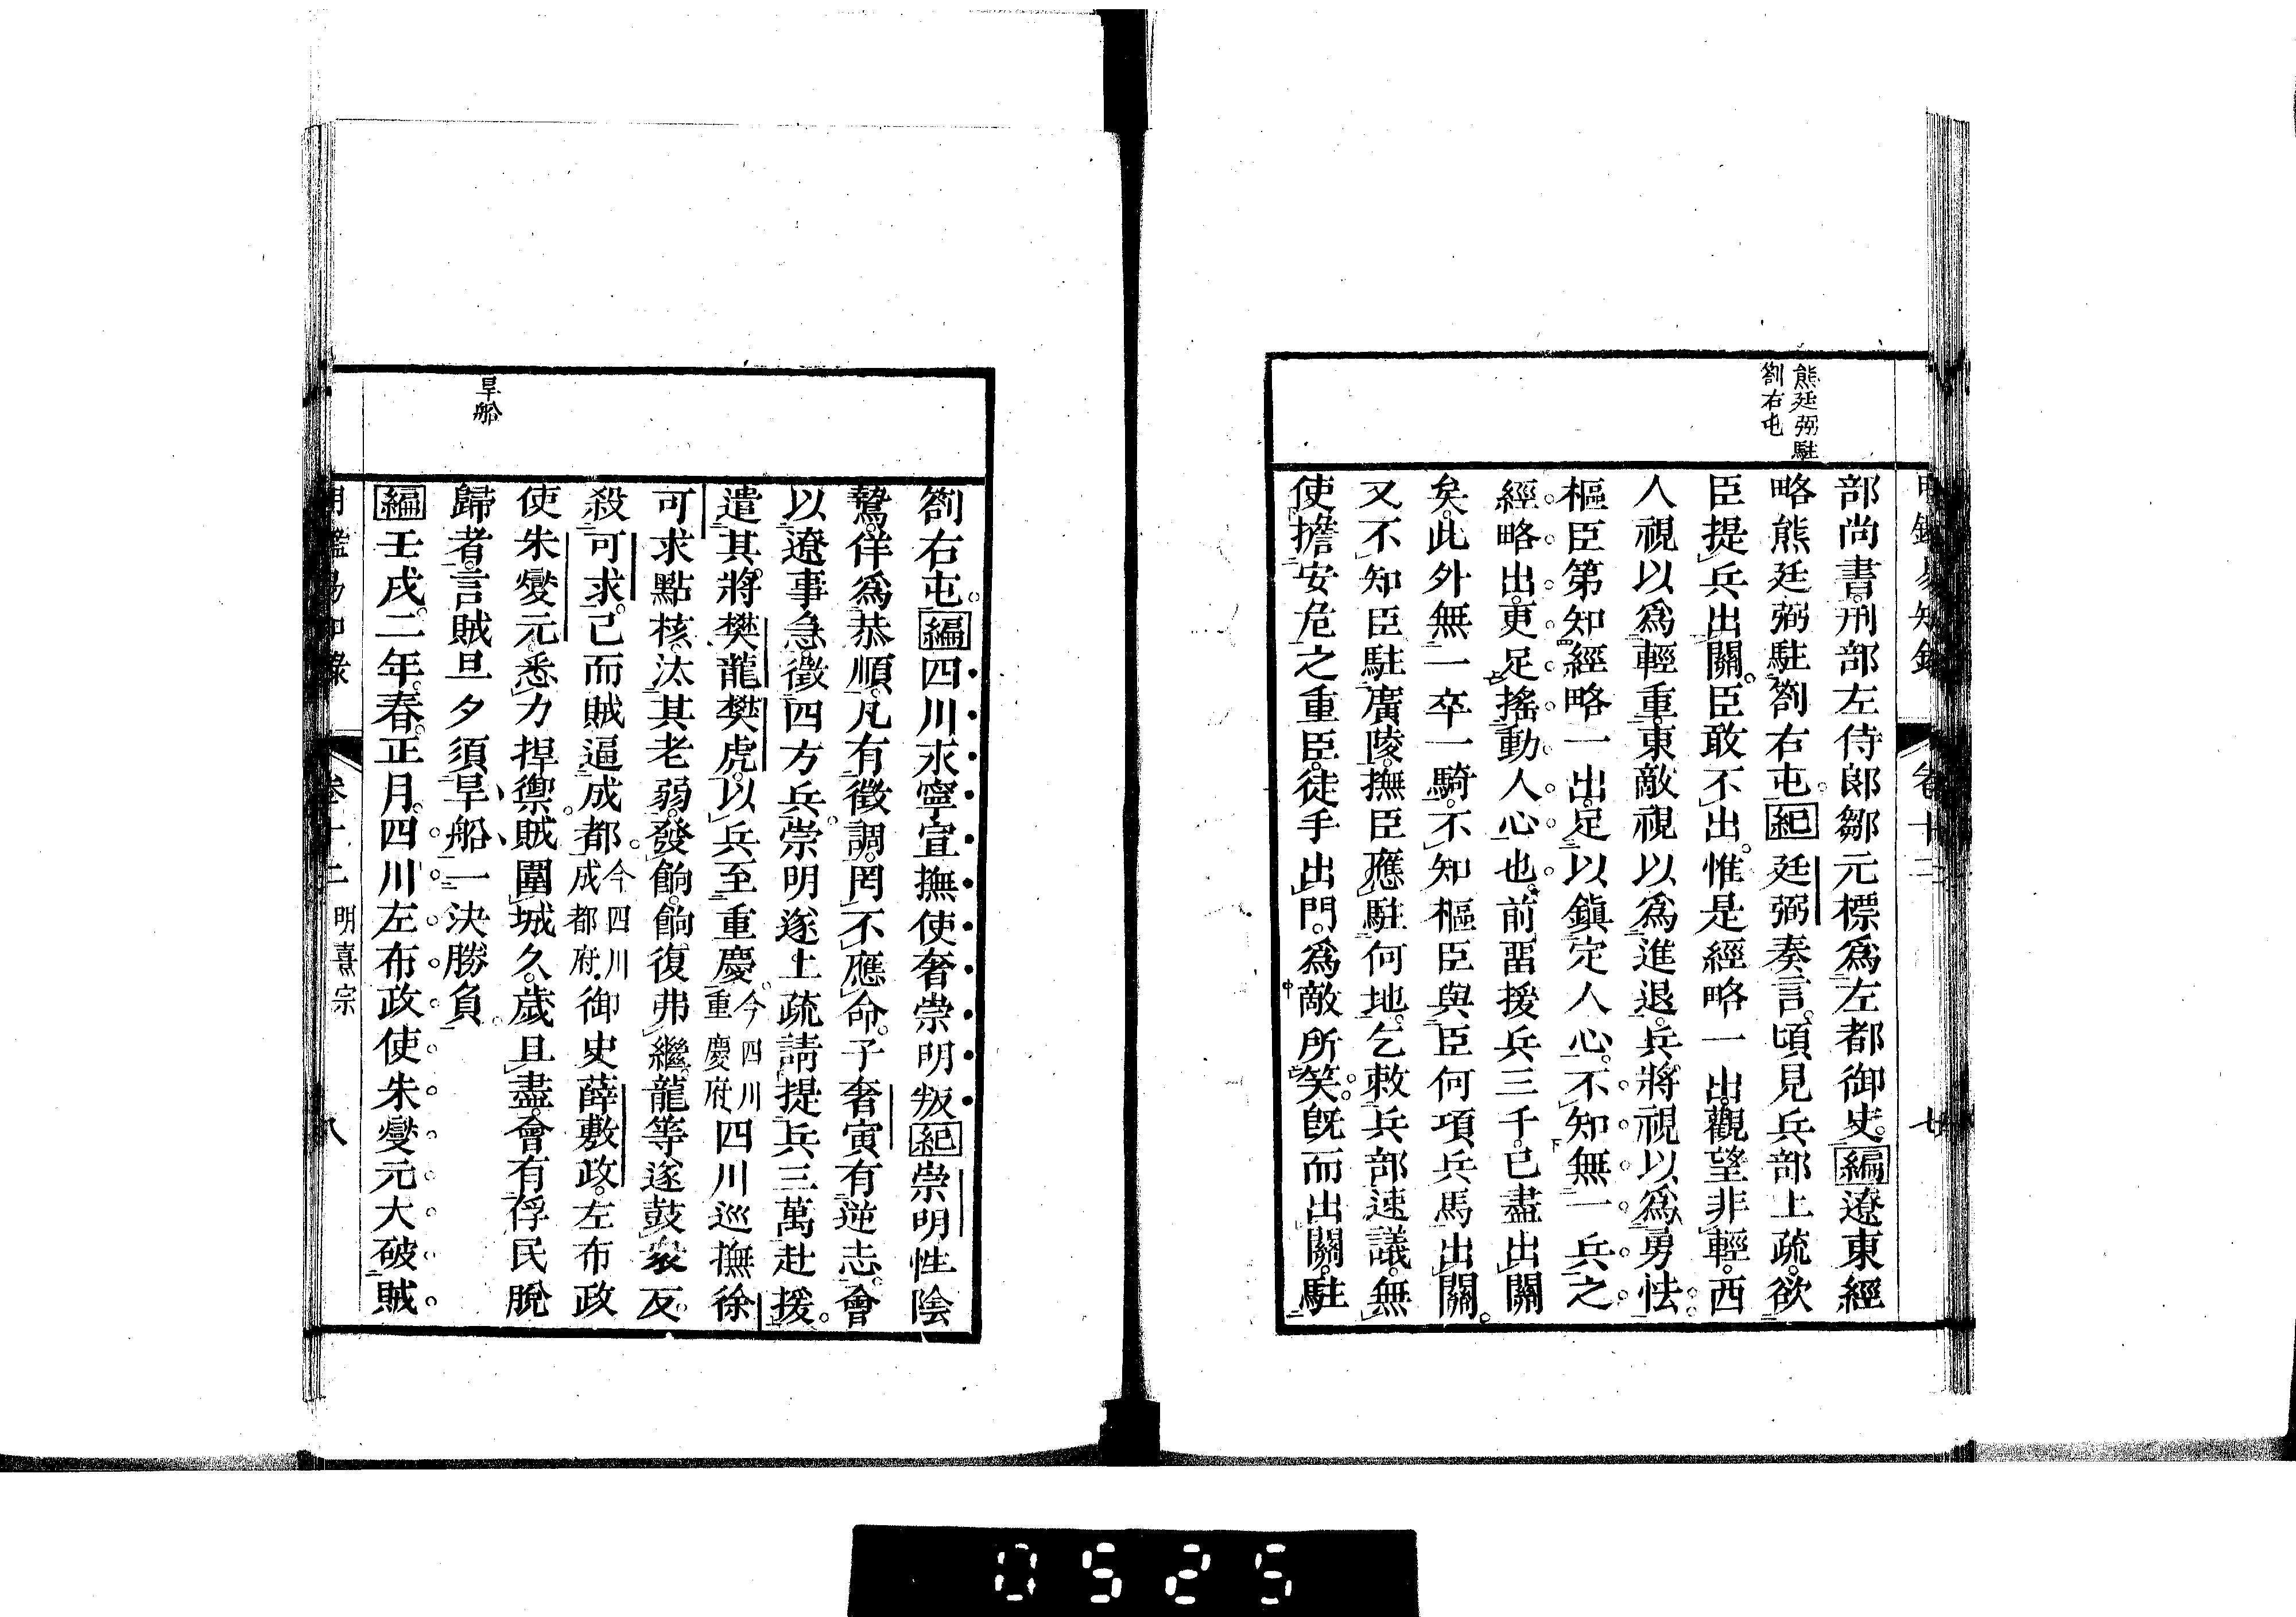 明鑑易知錄
卷十二
七
熊廷弼駐
劄右屯
部尚書。刑部左侍郎鄒元標爲左都御史。編遼東經
略熊廷弼駐劄右屯。紀廷弼奏言。頃見兵部上疏。欲
臣提兵出關。臣敢不出。惟是經略一出。觀望非輕。西
人視以爲輕重。東敵視以爲進退。兵將視以爲勇怯。
樞臣第知經略一出。足以鎭定人心。不知無一兵之
經略出。更足搖動人心也。前畱援兵三千。已盡出關
矣。此外無一卒一騎。不知樞臣與臣何項兵馬出關。
又不知臣駐廣陵。撫臣應駐何地。乞敕兵部速議。無
使擔安危之重臣。徒手出門。爲敵所笑。旣而出關。駐
劄右屯。編四川永寧宣撫使奢崇明叛。紀崇明性陰
鷙。佯爲恭順。凡有徵調。罔不應命。子奢寅有逆志。會
以遼事急。徵四方兵。崇明遂上疏請提兵三萬赴援。
遣其將樊龍樊虎。以兵至重慶。今四川重慶府。四川巡撫徐
可求點核。汰其老弱。發餉。餉復弗繼。龍等遂鼓衆反。
殺可求。已而賊逼成都。今四川成都府。御史薛敷政。左布政
使朱燮元。悉力捍禦。賊圍城久。歲且盡。會有俘民脫
歸者。言賊旦夕須旱船一決勝負。
旱船
編壬戌二年。春。正月。四川左布政使朱燮元大破賊
明鑑易知錄
卷十二
明熹宗
八
0525